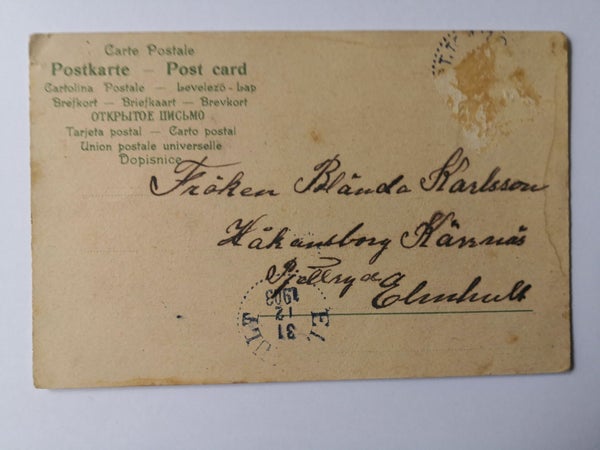 Carte Postale
Postkarte — Post card
Cartolina Postale — Levelező-Lap
Brefkort — Briefkaart — Brevkort
ОТКРЫТОЕ ПИСЬМО
Tarjeta postal — Carto postal
Union postale universelle
Dopisnice
Fröken Blända Karlsson
Håkansborg Kärrnäs
Pjätteryd
Elmhult
31
12
1903